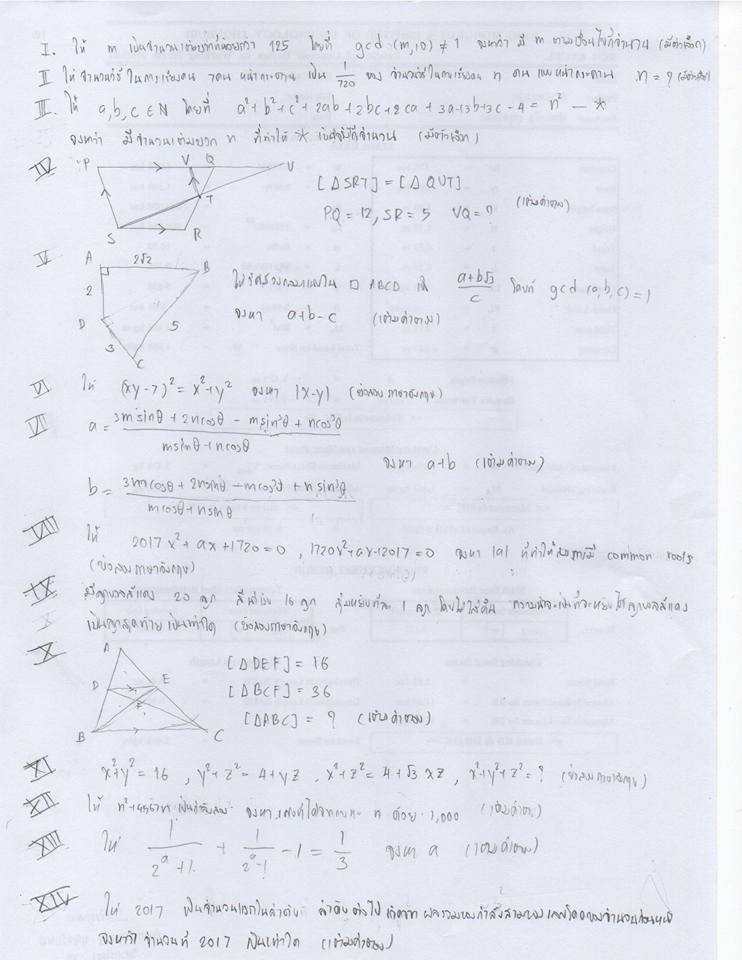 I. ให้ m เป็นจำนวนเต็มบวกที่น้อยกว่า 125 โดยที่ gcd (m,10) ≠ 1 จงหาว่า มี m ตามเงื่อนไขกี่จำนวน (มีตัวเลือก)
II ให้ จำนวนวิธี ในการเรียงคน 7คน หน้ากระดาน เป็น 1/720 ของ จำนวนวิธีในการเรียงคน n คน แบบหน้ากระดาน n = ? (มีตัวเลือก)
III. ให้ a,b,c ∈ N โดยที่ a²+b²+c²+2ab+2bc+2ca+3a+3b+3c-4 = n² — *
จงหาว่า มีจำนวนเต็มบวก n ที่ทำให้ * เป็นจริงกี่จำนวน (มีตัวเลือก)
IV P V Q U
T
S R
[ΔSRT] = [ΔQUT]
PQ = 12, SR = 5 VQ = ? (เติมคำตอบ)
V A 2√2 B
2
D 5
3
C
ABCD a+b√3 / c โดยที่ gcd (a,b,c) = 1
จงหา a+b-c (เติมคำตอบ)
VI ให้ (xy-7)² = x²+y² จงหา |x-y| (ข้อสอบภาษาอังกฤษ)
VII a = 3m sinθ + 2n cosθ - m sin³θ + n cos³θ / m sinθ + n cosθ
จงหา a+b (เติมคำตอบ)
b = 3m cosθ + 2n sinθ - m cos³θ + n sin³θ / m cosθ + n sinθ
VIII ให้ 2017x²+ax+1720=0 , 1720x²+ax+2017=0 จงหา |a| ที่ทำให้สมการมี common roots
(ข้อสอบภาษาอังกฤษ)
IX มีลูกบอลสีแดง 20 ลูก 16 ลูก สุ่มหยิบทีละ 1 ลูก โดยไม่ใส่คืน ความน่าจะเป็นที่จะหยิบได้ลูกบอลสีแดง
เป็นลูกสุดท้าย เป็นเท่าใด (ข้อสอบภาษาอังกฤษ)
X A
D E
F
B C
[ΔDEF] = 16
[ΔBCF] = 36
[ΔABC] = ? (เติมคำตอบ)
XI x²+y² = 16 , y²+z² = 4+yz , x²+z² = 4+√3 xz , x²+y²+z² = ? (ข้อสอบภาษาอังกฤษ)
XII ให้ จงหา n ด้วย 1,000 (เติมคำตอบ)
XIII ให้ 1/2^a+1 + 1/2^a-1 - 1 = 1/3 จงหา a (เติมคำตอบ)
XIV ให้ 2017 เป็นจำนวนแรกในลำดับ ลำดับต่อไป เกิดจาก ผลรวมของกำลังสามของเลขโดดของจำนวนก่อนหน้า
จงหาว่า จำนวนที่ 2017 เป็นเท่าใด (เติมคำตอบ)